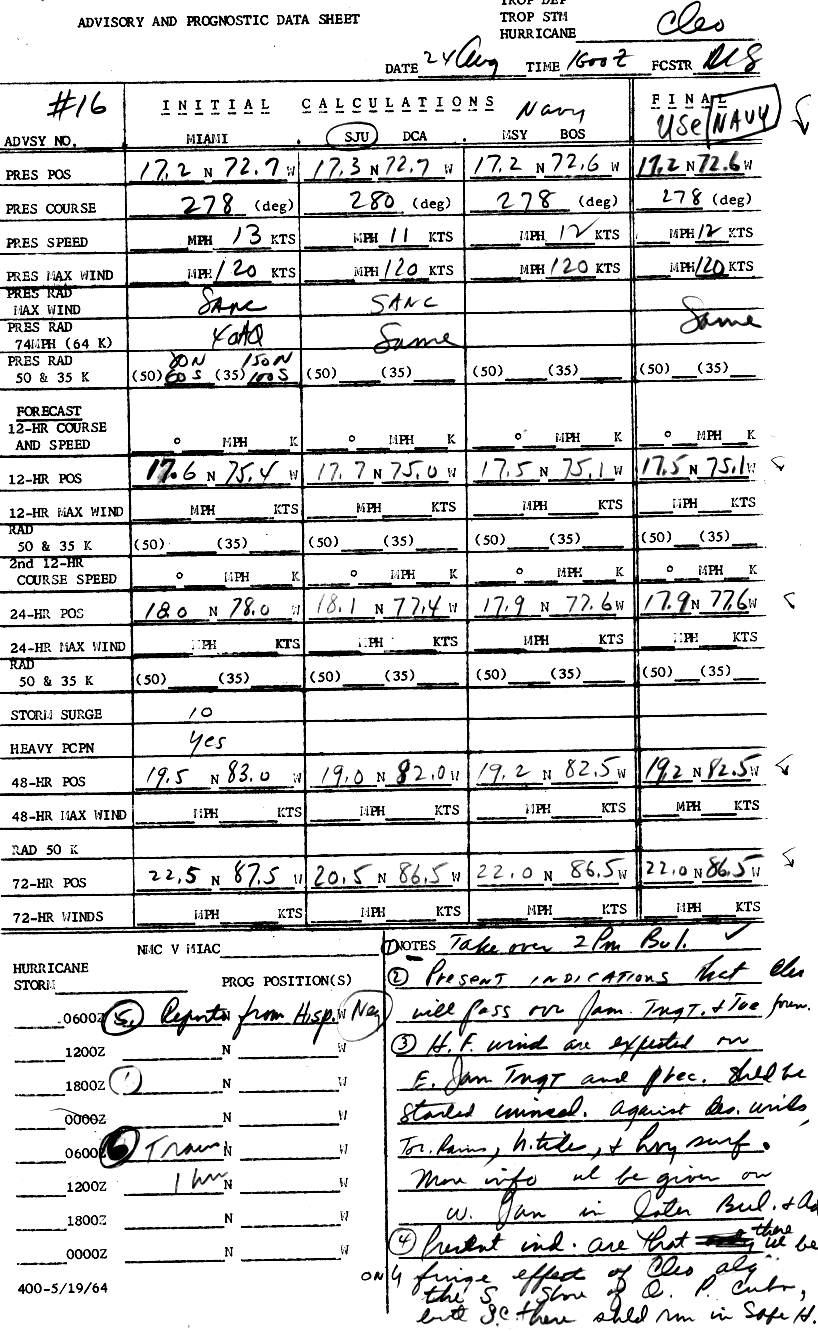 TROP DEP
ADVISORY AND PROGNOSTIC DATA SHEET TROP STM
HURRICANE Cleo
DATE 24 Aug TIME 1600Z FCSTR
#16 INITIAL CALCULATIONS Navy FINAL
USE NAVY
ADVSY NO. MIAMI SJU DCA MSY BOS
PRES POS 17.2 N 72.7 W 17.3 N 72.7 W 17.2 N 72.6 W 17.2 N 72.6 W
PRES COURSE 278 (deg) 280 (deg) 278 (deg) 278 (deg)
PRES SPEED MPH 13 KTS MPH 11 KTS MPH 12 KTS MPH 12 KTS
PRES MAX WIND MPH 120 KTS MPH 120 KTS MPH 120 KTS MPH 120 KTS
PRES RAD
MAX WIND Sanc SANC
PRES RAD Same
74MPH (64 K) Same
PRES RAD 80N 150N
50 & 35 K (50) 60S (35) 100S (50) (35) (50) (35) (50) (35)
FORECAST
12-HR COURSE
AND SPEED ° MPH K ° MPH K ° MPH K ° MPH K
12-HR POS 17.6 N 75.4 W 17.7 N 75.0 W 17.5 N 75.1 W 17.5 N 75.1 W
12-HR MAX WIND MPH KTS MPH KTS MPH KTS MPH KTS
RAD
50 & 35 K (50) (35) (50) (35) (50) (35) (50) (35)
2nd 12-HR
COURSE SPEED ° MPH K ° MPH K ° MPH K ° MPH K
24-HR POS 18.0 N 78.0 W 18.1 N 77.4 W 17.9 N 77.6 W 17.9 N 77.6 W
24-HR MAX WIND MPH KTS MPH KTS MPH KTS MPH KTS
RAD
50 & 35 K (50) (35) (50) (35) (50) (35) (50) (35)
STORM SURGE 10
HEAVY PCPN Yes
48-HR POS 19.5 N 83.0 W 19.0 N 82.0 W 19.2 N 82.5 W 19.2 N 82.5 W
48-HR MAX WIND MPH KTS MPH KTS MPH KTS MPH KTS
RAD 50 K
72-HR POS 22.5 N 87.5 W 20.5 N 86.5 W 22.0 N 86.5 W 22.0 N 86.5 W
72-HR WINDS MPH KTS MPH KTS MPH KTS MPH KTS
NMC V MIAC
HURRICANE
STORM PROG POSITION(S)
0600Z 5. Reports N from Hisp. W
1200Z N W
1800Z N W
0000Z N W
0600Z 6 N W
1200Z 1 hr N W
1800Z N W
0000Z N W
400-5/19/64
① NOTES Take over 2 PM Bul.
② PRESENT INDICATIONS that Cleo
will pass over Jam. Tngt. &
③ H.F. wind are expected on
E. Jam Tngt and prec. shld be
started against
Tor. Rains, h. tides, & hvy surf.
More info wl be given on
w. Jam in later Bul. &
④ Present ind. are that there wl be
ONLY fringe effect of Cleo alg
the S. Shore of O. P. Cuba,
but S.C. there shld rm in Safe H.